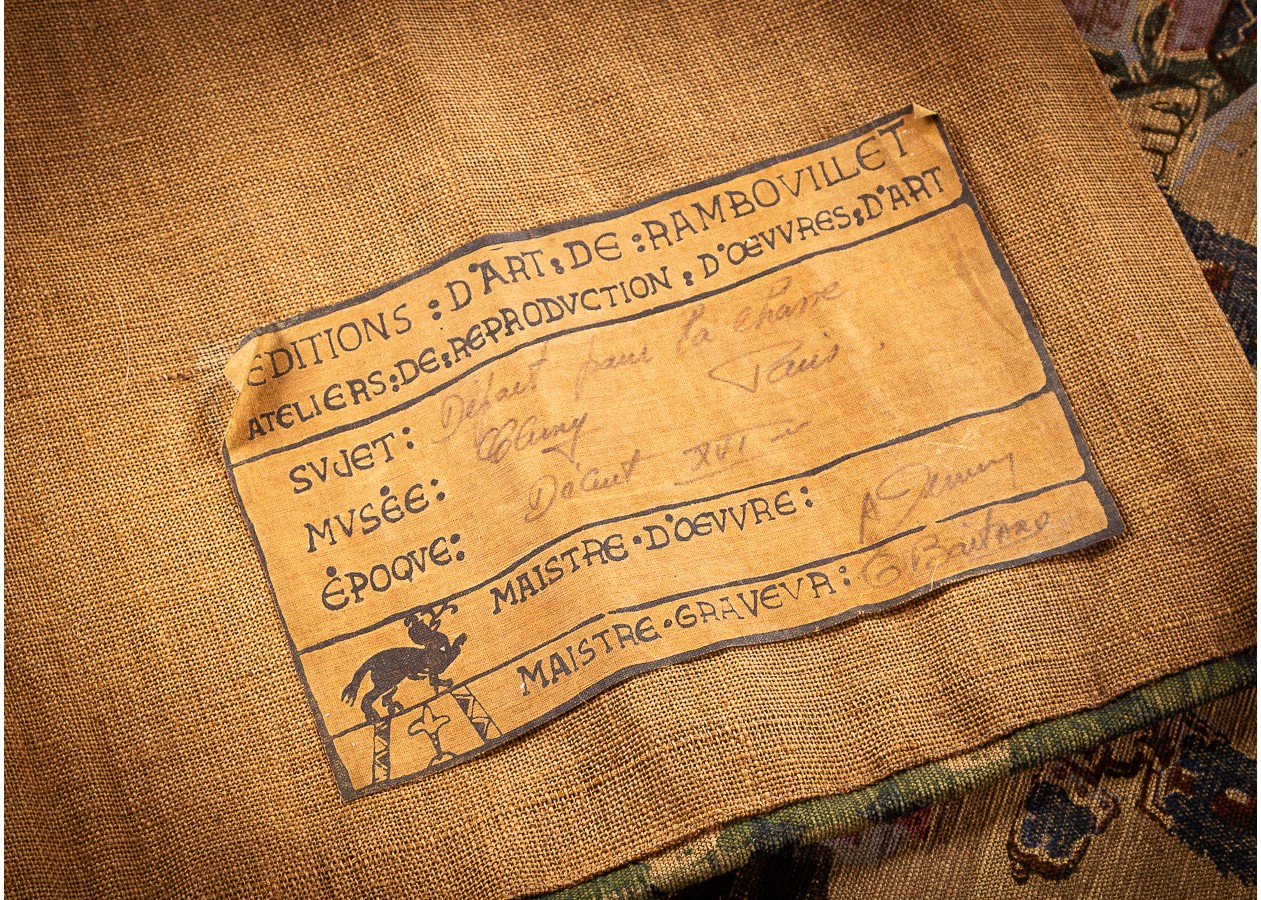 EDITIONS : D'ART : DE : RAMBOVILLET
ATELIERS : DE : REPRODVCTION : D'ŒVVRES : D'ART
SVJET : Départ pour la chasse
MVSÉE : Cluny Paris.
ÉPOQVE : Début XVI
MAISTRE · D'ŒVVRE : A
MAISTRE · GRAVEVR :